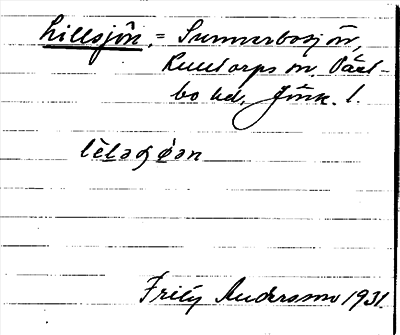 Lillsjön, = Sunnerbosjön,
Kulltorps sn. Väst-
bo hd, Jönk. l.
lìlaʃǿən
Fritz Andersson 1931.